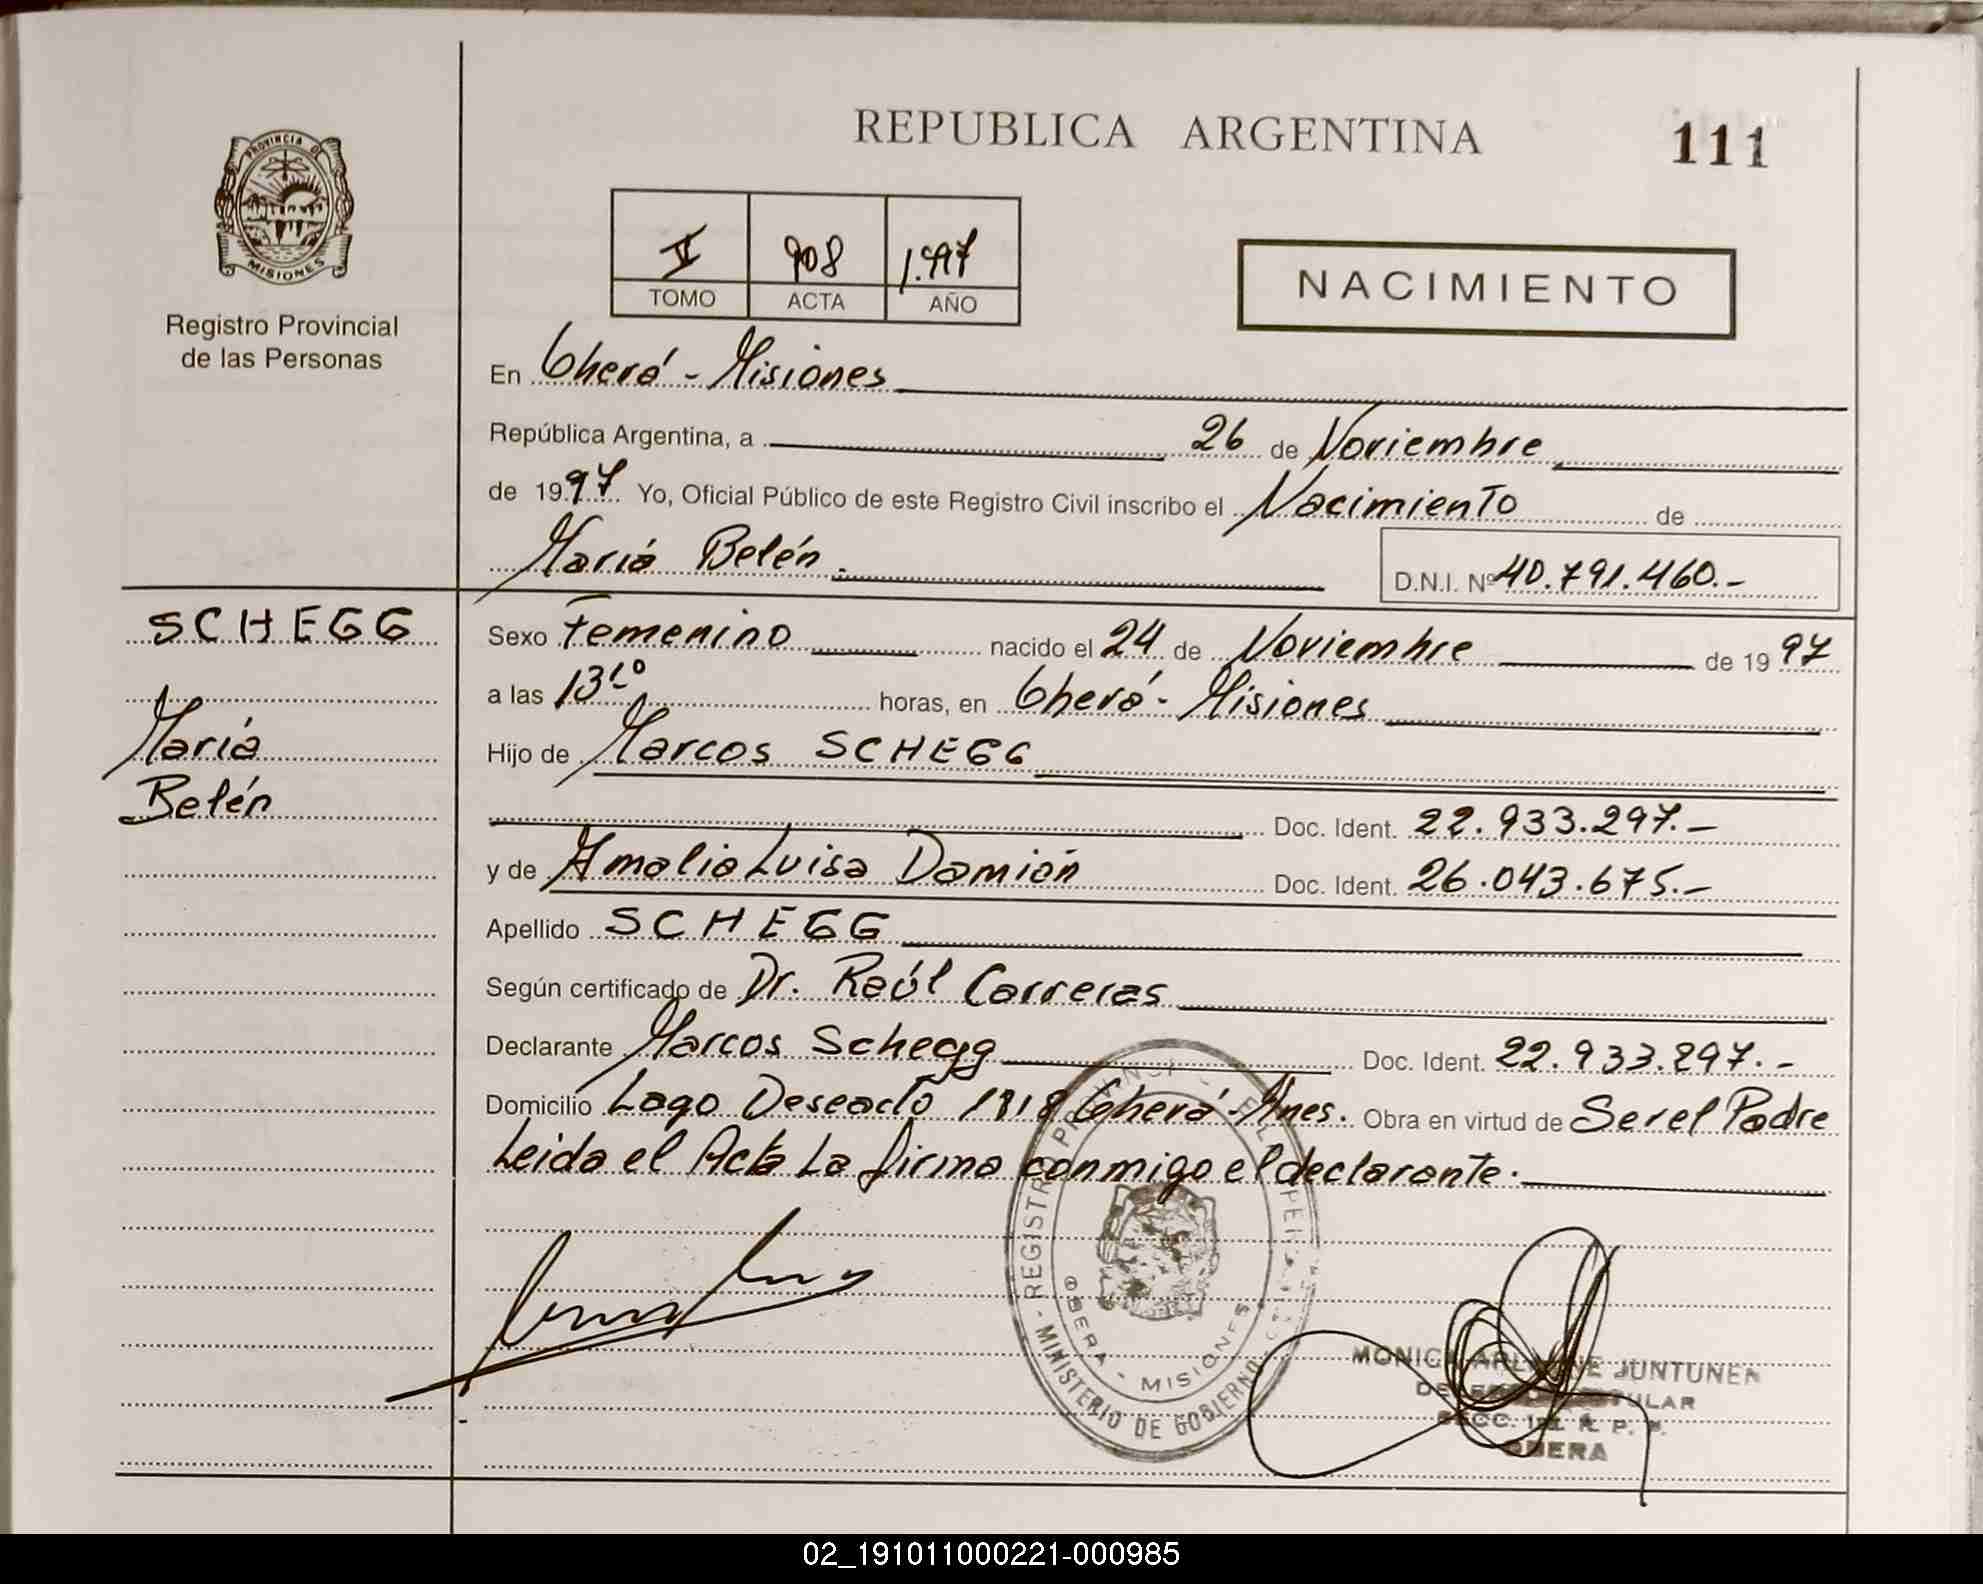 REPUBLICA ARGENTINA
111
PROVINCIA DE
MISIONES
Registro Provincial
de las Personas
V 908 1.997
TOMO ACTA AÑO
NACIMIENTO
En Oberá - Misiones
República Argentina, a 26 de Noviembre
de 1997 Yo, Oficial Público de este Registro Civil inscribo el Nacimiento de
María Belén.
D.N.I. Nº 40.791.460.-
SCHEGG
María
Belén
Sexo Femenino nacido el 24 de Noviembre de 19 97
a las horas, en Oberá - Misiones
Hijo de Marcos SCHEGG
Doc. Ident. 22.933.297.-
y de Amalia Luisa Damián Doc. Ident. 26.043.675.-
Apellido SCHEGG
Según certificado de Dr. Raúl Carreras
Declarante Marcos Schegg Doc. Ident. 22.933.297.-
Domicilio Lago Deseado 1818 Oberá - Mnes. Obra en virtud de Ser el Padre
Leida el Acta La firma conmigo el declarante.
REGISTRO PROVINCI
- MINISTERIO DE GOBIERNO -
OBERA - MISIONES
MONICA JUNTUNEN
OBERA
02_191011000221-000985